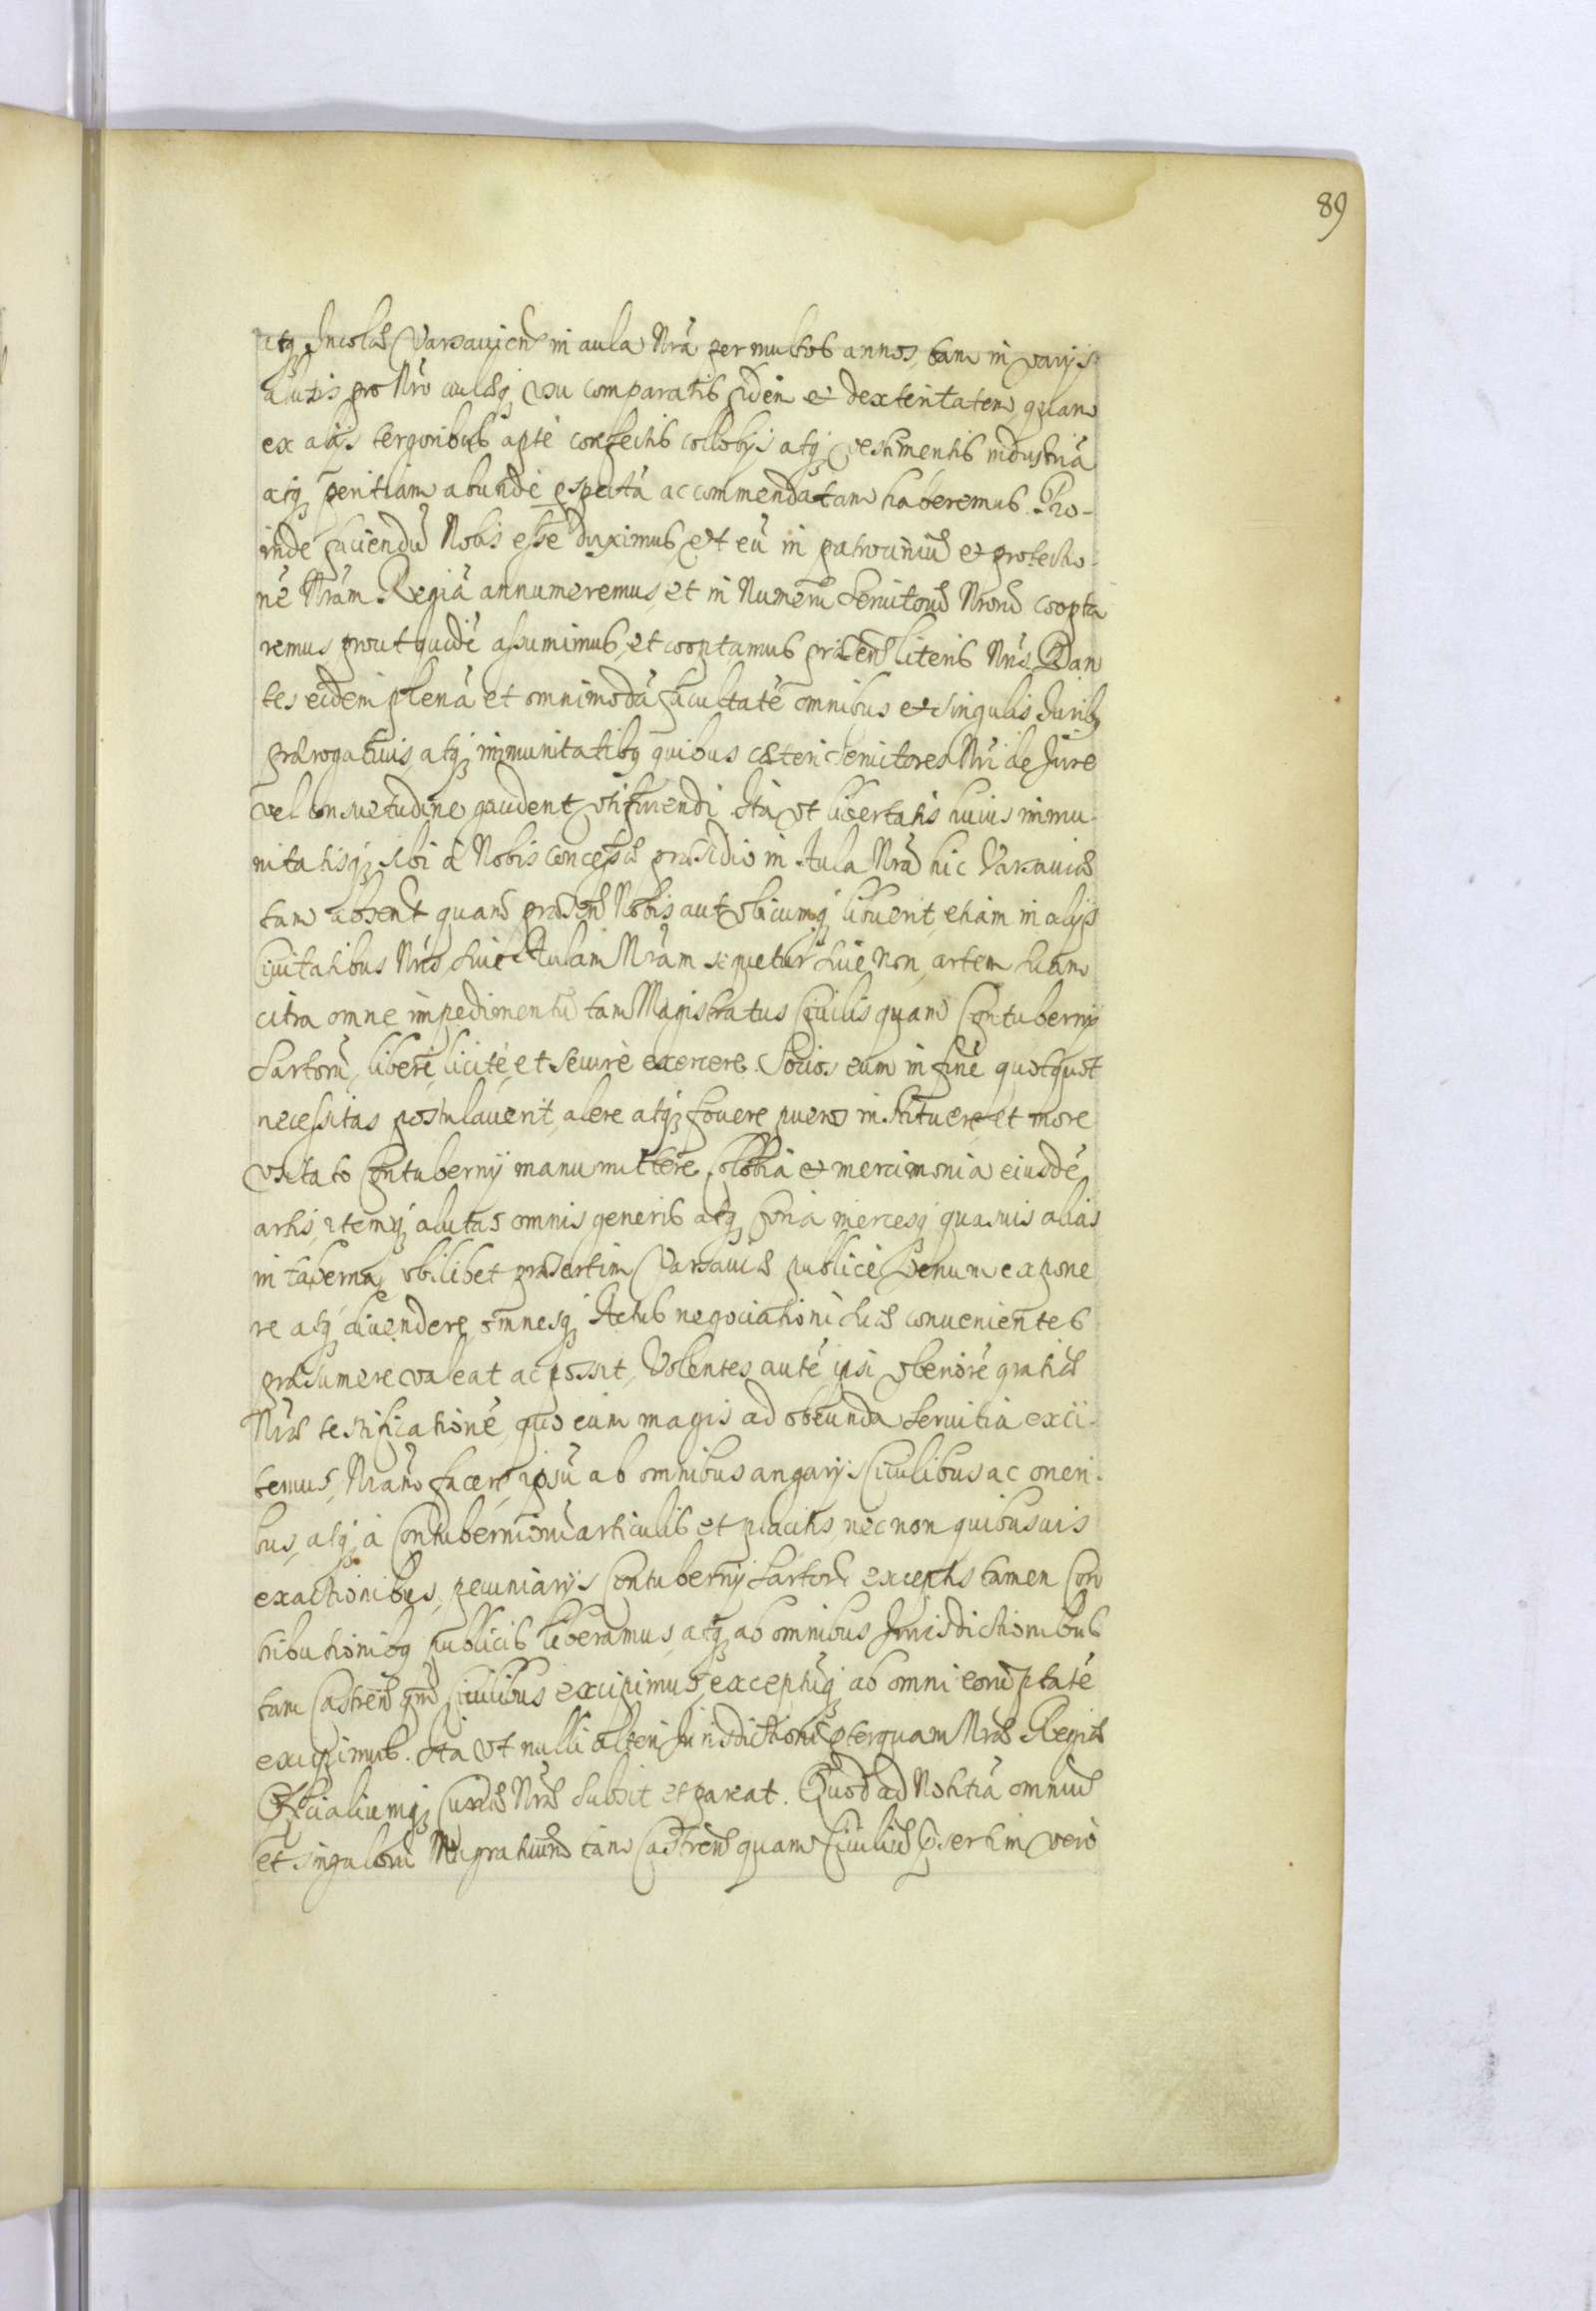 89
atq Incolæ Varsauien in aula Nrã per multos annos, tam in varijs
alutis pro Nrõ aulæq usu comparatis fidem et dexteritatem, quam
ex alijs tergoribus aptè confectis collobijs atq vestimentis industriã
atq peritiam abundè perspectã ac commendatam haberemus. Pro-
inde faciendũ Nobis esse duximus, vt eũ in patrociniũ et protectio-
nẽ Nrãm Regiã annumeremus, et in Numerũ Seruitorũ Nrorũ coopta
remus prout quidẽ assumimus, et cooptamus præsen literis Nris. Dan
tes eidem plenã et omnimodã facultatẽ omnibus et singulis Juribq
prærogatiuis, atq immunitatibq quibus cæteri Seruitores Nri de Jure
vel consuetudine gaudent vtifruendi. Ita vt libertatis huius immu-
nitatisq sibi à Nobis concessæ præsidio in Aula Nrã hic Varsauiæ
tam absent quam præsen Nobis aut vbicumq libuerit, etiam in alijs
Ciuitatibus Nris, siue Aulam Nrãm sequetur siue non, artem suam
citra omne impedimentũ tam Magistratus Ciuilis quam Contubernij
Sartorũ, liberè, licitè, et securè exercere. Socios eum in finẽ quotquot
necessitas postulauerit, alere atq fouere pueros instituere et more
vsitato Contubernij manumittere, collobia et mercimonia eiusdẽ
artis, itemq alutas omnis generis atq coria mercesq quasuis alias
in taberna, vbilibet præsertim Varsauiæ publicè, venum expone
re atq diuendere, omnesq Actus negociationi suæ conuenientes
præsumere valeat ac possit. Volentes autẽ ipsi vberiorẽ gratiæ
Nræ testificationẽ, quo eum magis ad obeunda seruitia exci-
temus, Nram facere, ipsũ ab omnibus angarijs Ciuilibus ac oneri-
bus, atq à Contuberniorũ articulis et placitis, necnon quibusuis
exactionibus, pecuniarijs Contubernij Sartorũ exceptis tamen Con
tributionibq publicis liberamus, atq ab omnibus Jurisdictionibus
tam Castren qm Ciuilibus excipimus, exceptũq ab omni eorũ ptatẽ
excipimus. Ita vt nulli alteri Jurisdictioni pterquam Nræ Regiæ
Officialiumq Curiæ Nræ subsit et pareat. Quod ad Notitiã omniũ
et singulorũ Magratuum tam Castren quam Ciuiliũ psertim verò